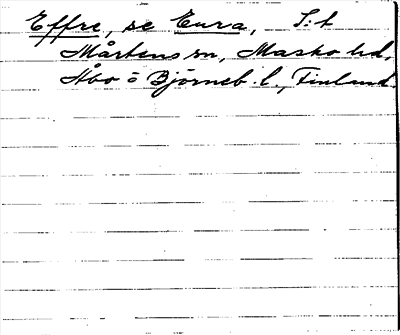 Effre, se Eura, S:t
Mårtens sn, Masko hd,
Åbo o Björneb. l., Finland.